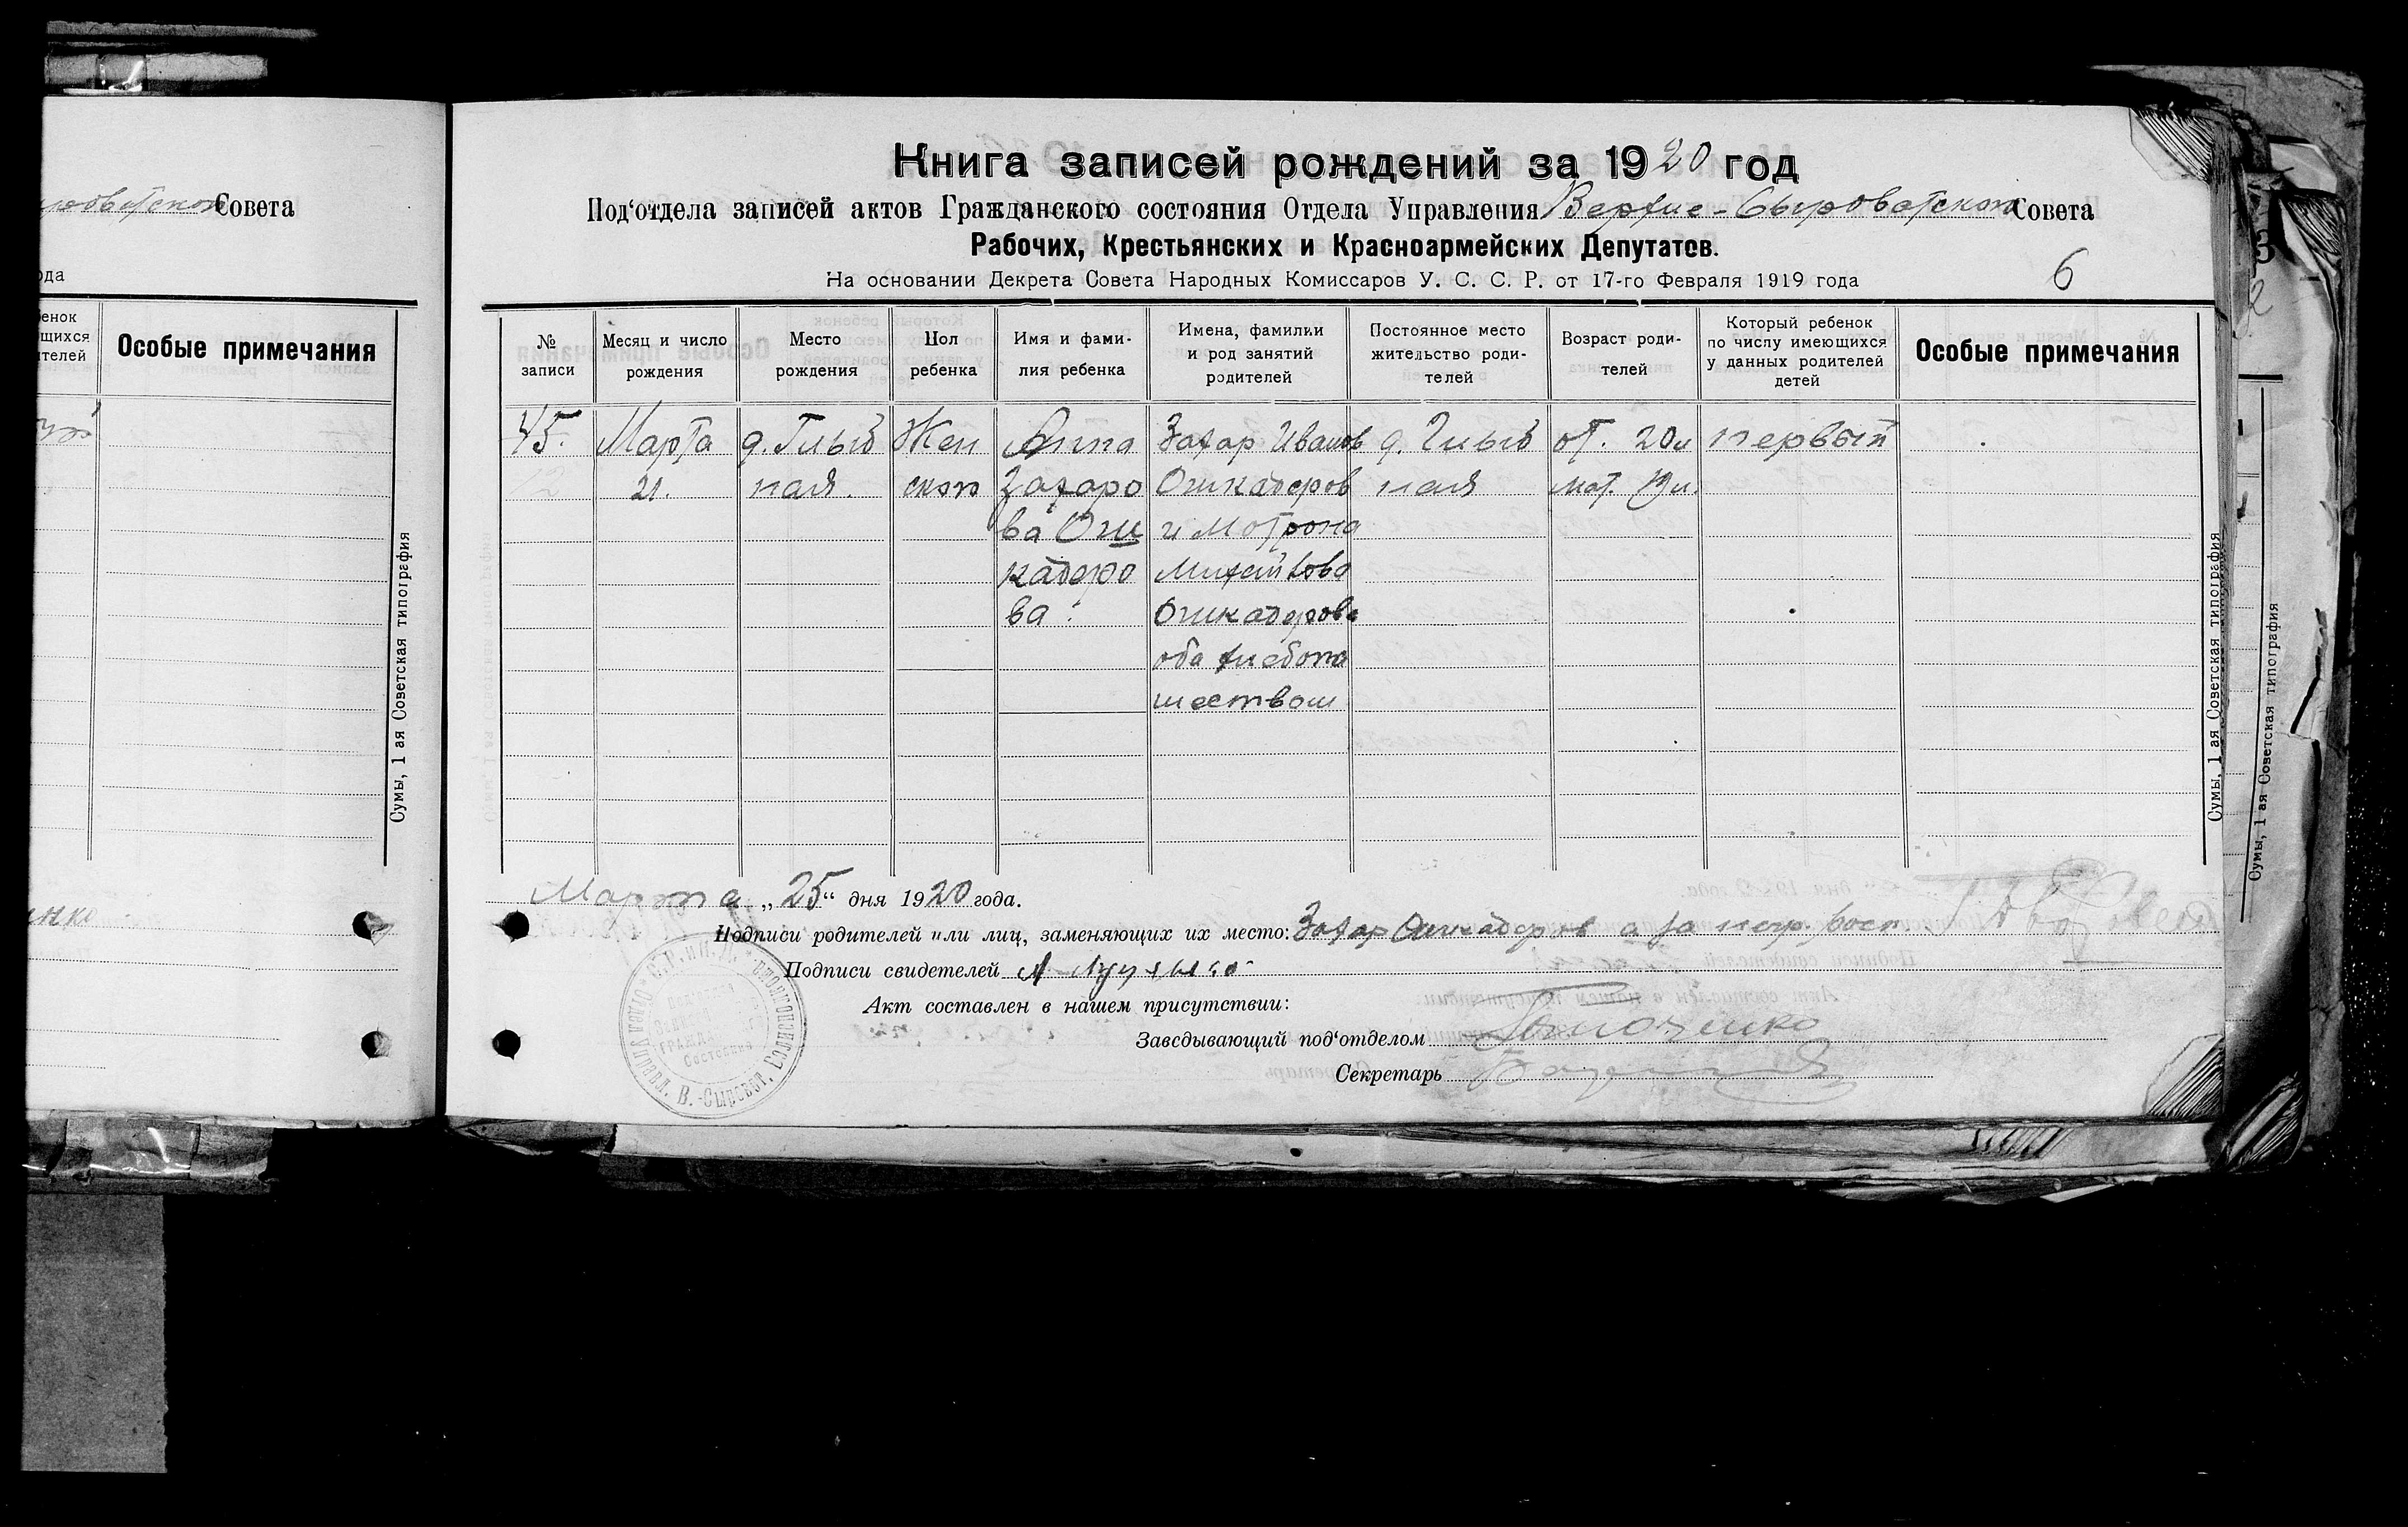 Совета
ода
енок
щихся
ителей
Особые примечания
Сумы, 1 ая Советская типография
нко
Книга записей рождений за 1920 год
Под‘отдела записей актов Гражданского состояния Отдела Управления Верхне-Сыроватском Совета
Рабочих, Крестьянских и Красноармейских Депутатов.
На основании Декрета Совета Народных Комиссаров У. С. С. Р. от 17-го Февраля 1919 года
6
№ записи
Месяц и число рождения
Место рождения
Пол ребенка
Имя и фами-
лия ребенка
Имена, фамилии
и род занятий
родителей
Постоянное место
жительство роди-
телей
Возраст роди-
телей
Который ребенок
по числу имеющихся
у данных родителей
детей
Особые примечания
45.
Марта
21.
д. Гные
ная.
Жен
ского
Анна
Захаро
ва Ош
кадеро
ва.
Захар Иванов
Ошкадеров
и Мотрона
Ошкадерова
оба хлебопа
шеством
д. Гные
ная
от. 20 л
мат. 19 л.
первый
Сумы, 1 ая Советская типография
Сумы, 1 ая Советская типография
Марта „25“ дня 1920 года.
Подписи родителей или лиц, заменяющих их место: Захар Ошкадеров а за негр. росп.
Подписи свидетелей
Акт составлен в нашем присутствии:
Заведывающий под‘отделом
Секретарь
В.-Сыроват.